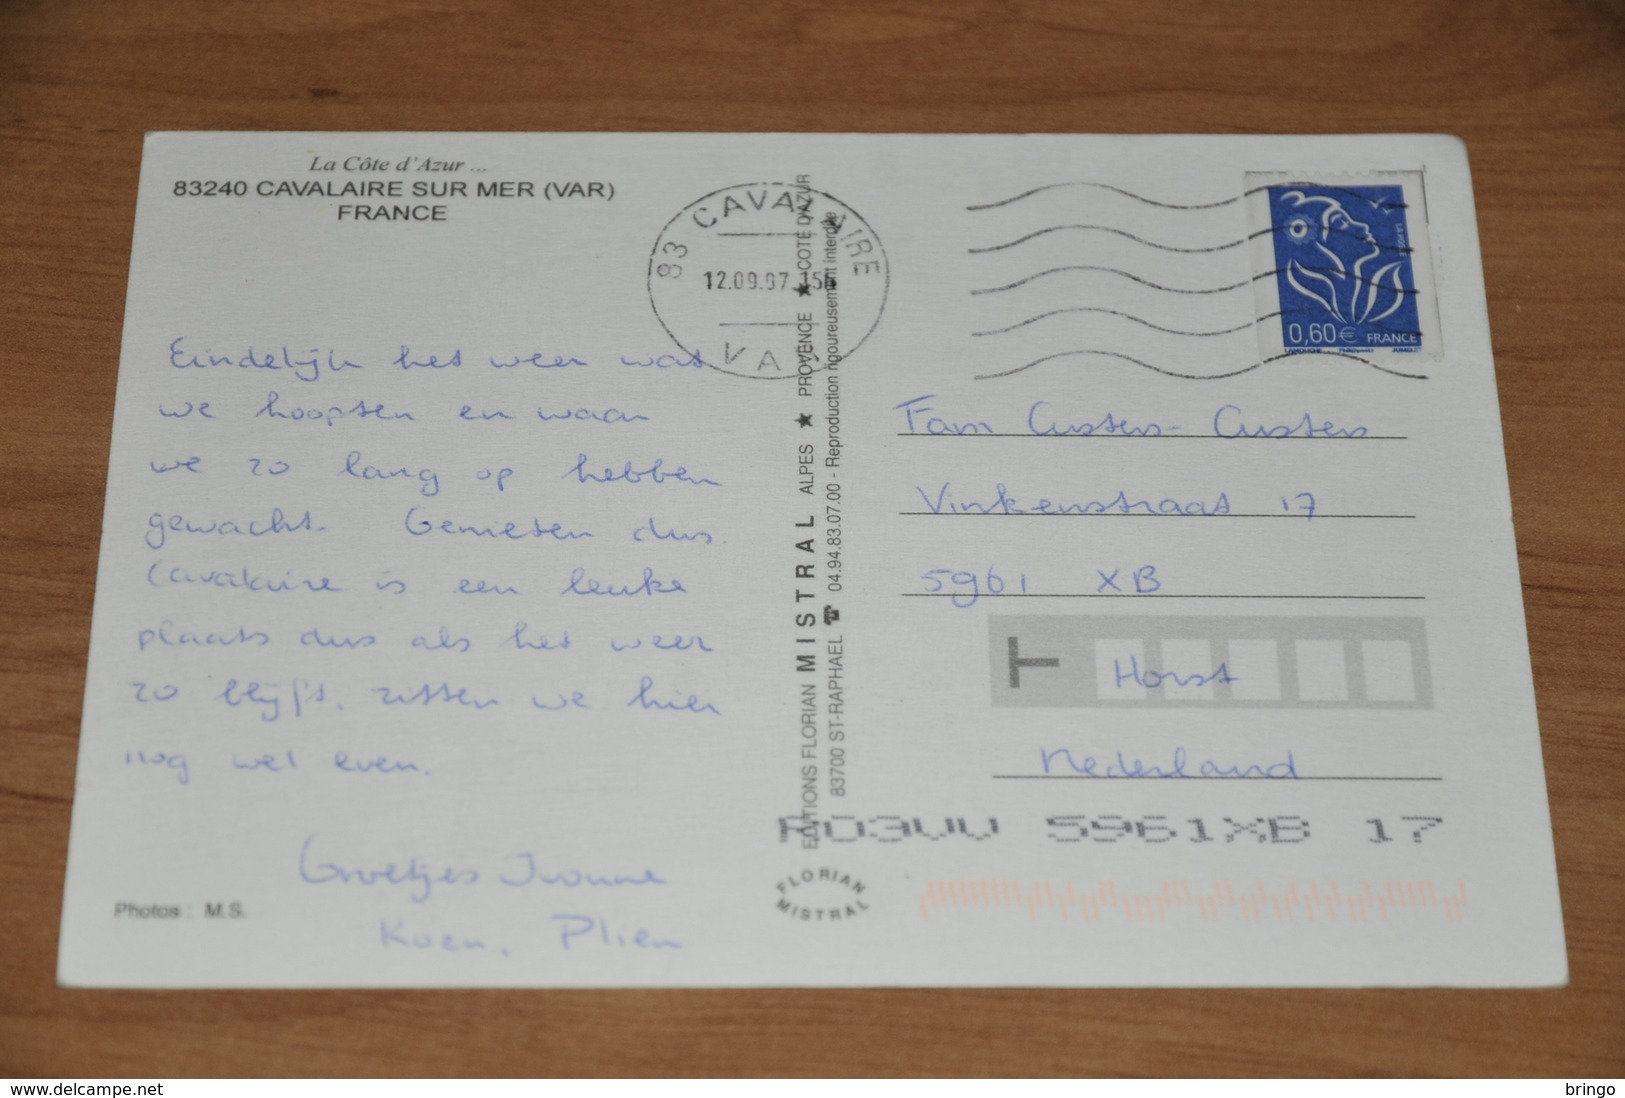 La Côte d'Azur ...
83240 CAVALAIRE SUR MER (VAR)
FRANCE
83 CAVALAIRE
12.09.07 15H
VAR
LA POSTE
0,60€ FRANCE
Eindelijk het weer wat
we hoopten en waar
we zo lang op hebben
gewacht. Genieten dus.
Cavalaire is een leuke
plaats dus als het weer
zo blijft, zitten we hier
nog wel even.
Groetjes Ivonne
Koen, Plien
Photos : M.S.
EDITIONS FLORIAN MISTRAL ALPES ★ PROVENCE ★ COTE D'AZUR
83700 ST-RAPHAEL ☎ 04.94.83.07.00 - Reproduction rigoureusement interdite
FLORIAN
MISTRAL
Fam Custers-Custers
Vinkenstraat 17
5961 XB
Horst
Nederland
5961XB 17
delcampe.net
bringo